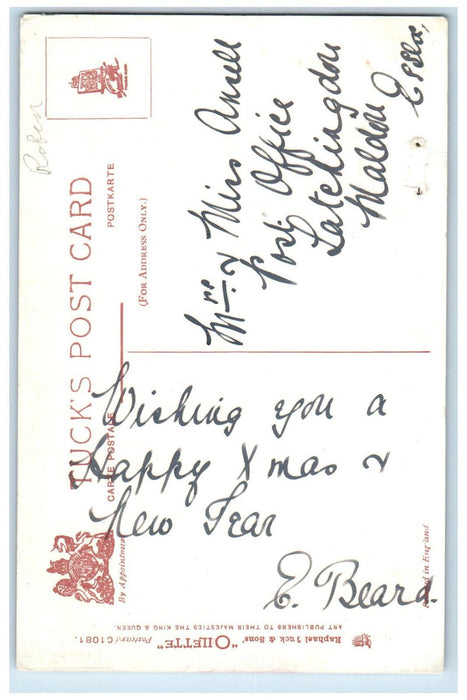 TUCK'S POST CARD
CARTE POSTALE
POSTKARTE
(FOR ADDRESS ONLY.)
Roben
Mrs. & Miss Ansell
Post Office
Latchingdon
Maldon
Essex,
Wishing you a
Happy Xmas &
New Year
E. Beard.
By Appointment
Raphael Tuck & Sons' "OILETTE" Postcard C1081.
ART PUBLISHERS TO THEIR MAJESTIES THE KING & QUEEN.
in England